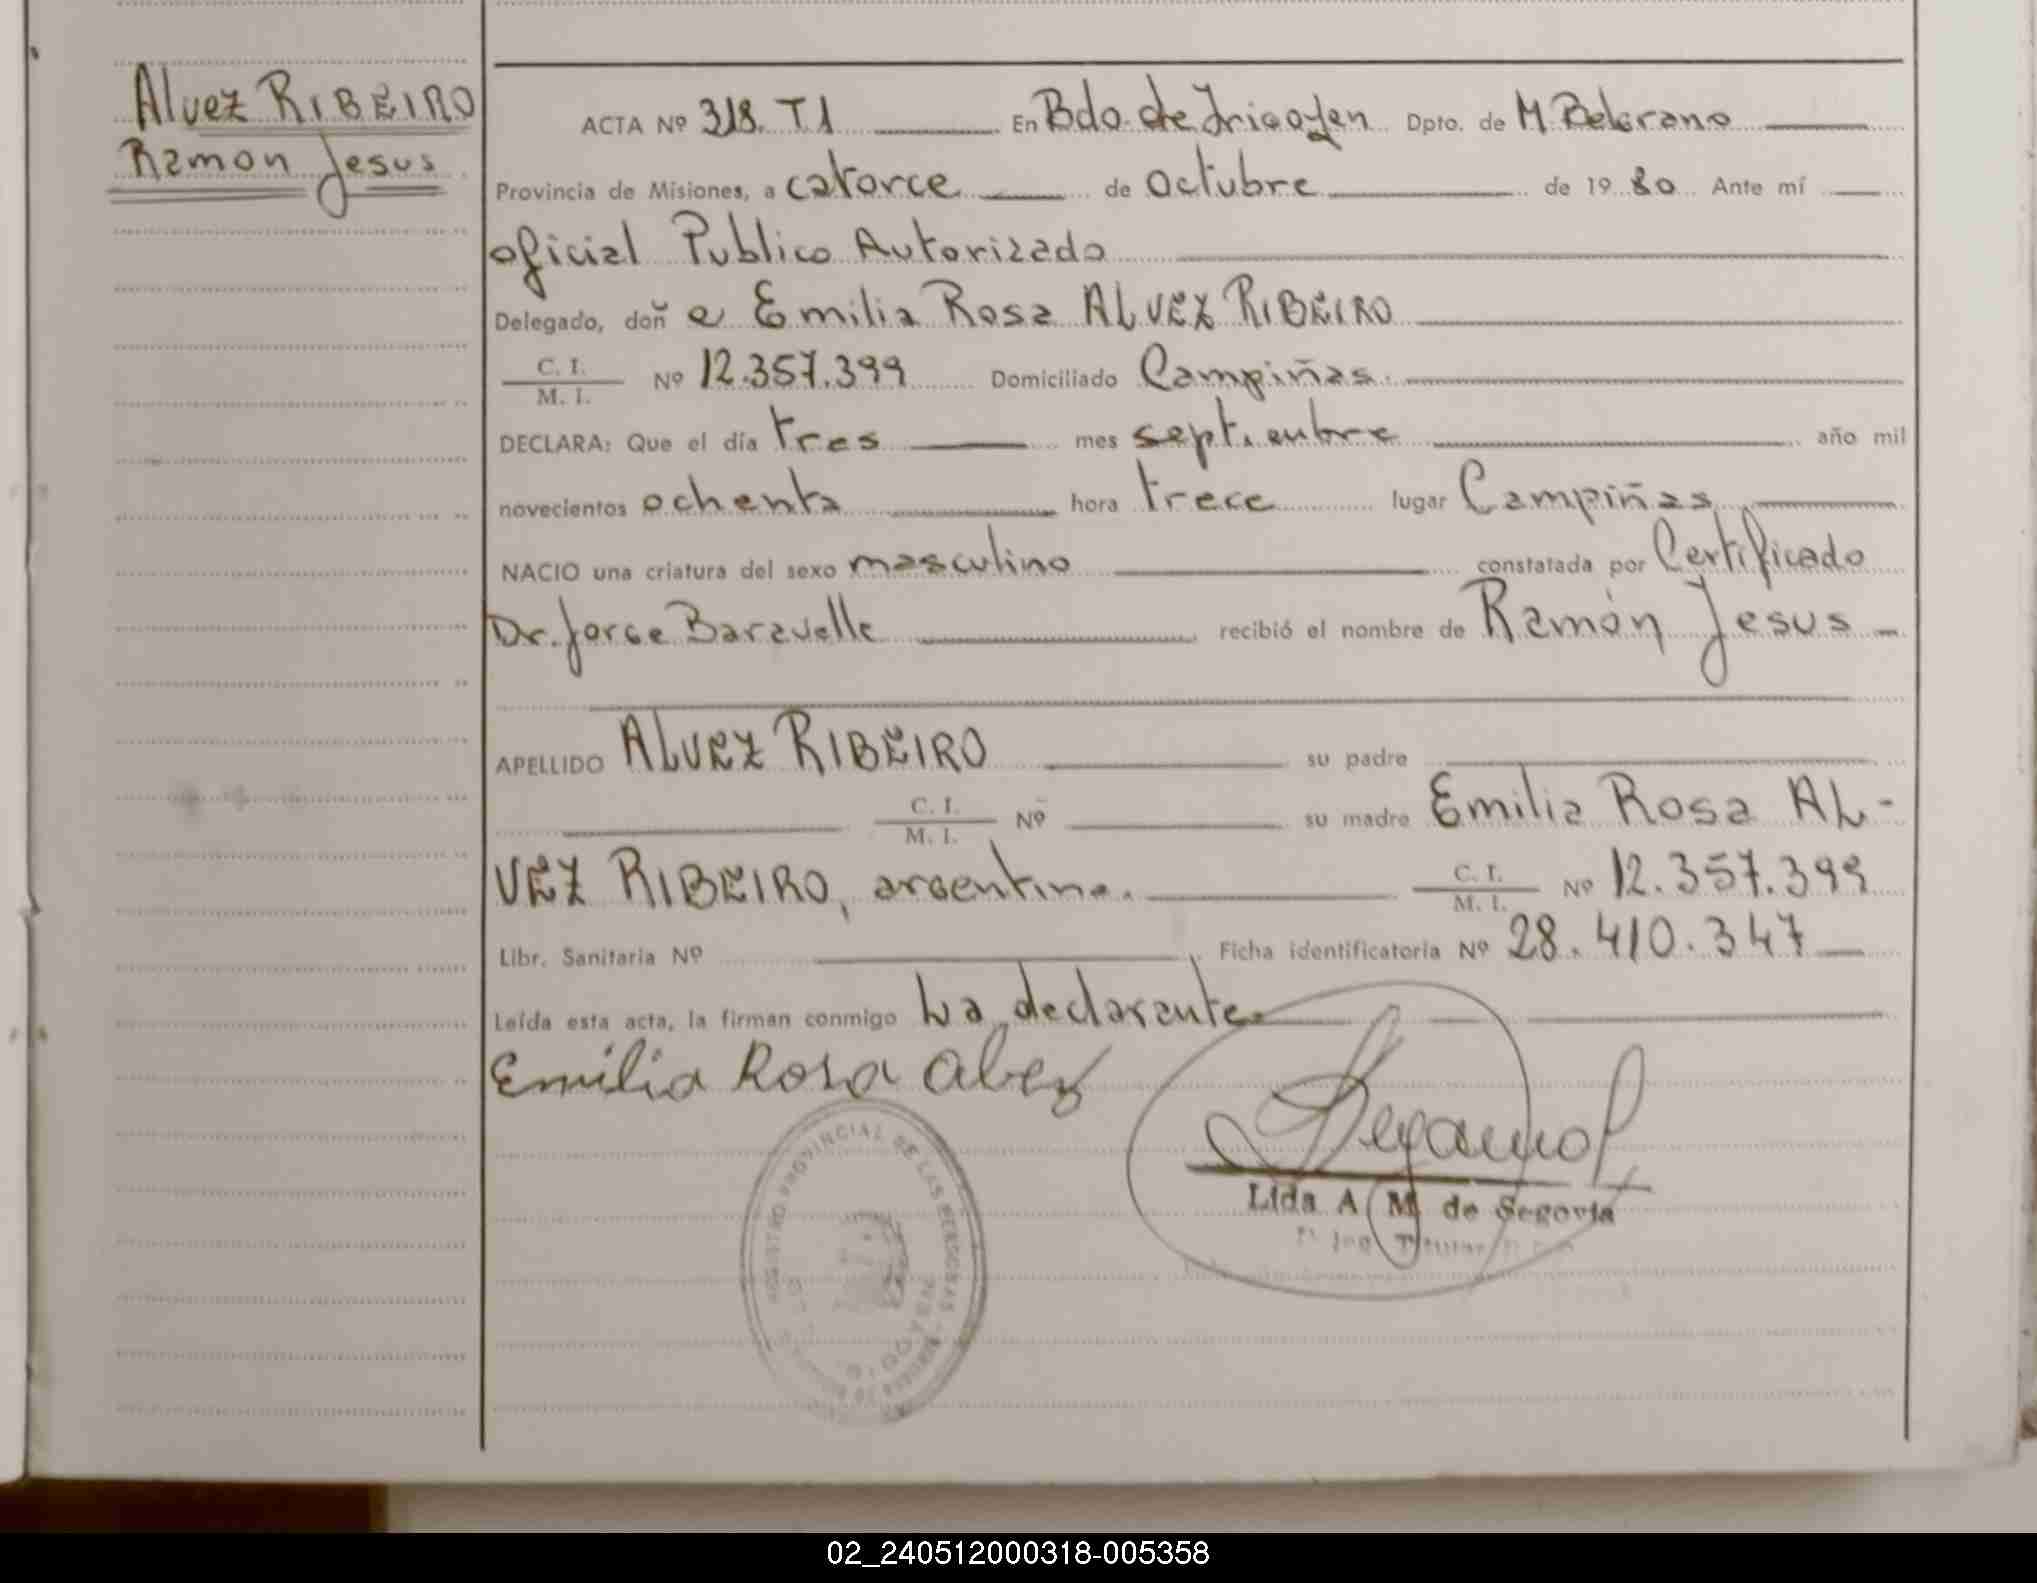 Alvez RIBEIRO
Ramon Jesus
ACTA Nº 318. T1 En Bdo. de Irigoyen Dpto. de M. Belgrano
Provincia de Misiones, a catorce de octubre de 1980 Ante mí
oficial Publico Autorizado
Delegado, doña Emilia Rosa ALVEZ RIBEIRO
C. I.
M. I. Nº 12.357.399 Domiciliado Campiñas.
DECLARA: Que el día tres mes septiembre año mil
novecientos ochenta hora trece lugar Campiñas
NACIO una criatura del sexo masculino constatada por Certificado
Dr. Jorge Baravelle recibió el nombre de Ramón Jesus
APELLIDO ALVEZ RIBEIRO su padre
C. I.
M. I. Nº su madre Emilia Rosa AL-
VEZ RIBEIRO, argentina. C. I.
M. I. Nº 12.357.399
Libr. Sanitaria Nº Ficha identificatoria Nº 28.410.347
Leída esta acta, la firman conmigo La declarante
Emilia Rosa Alvez
Lida A M de Segovia
REGISTRO PROVINCIAL DE LAS PERSONAS
02_240512000318-005358